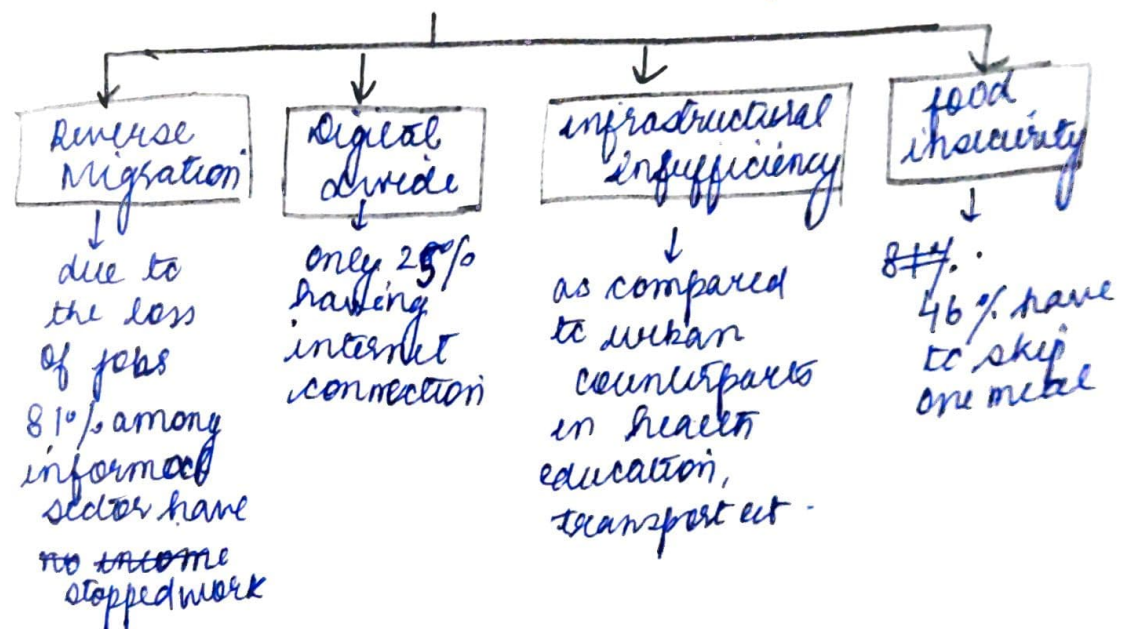 Reverse
Migration
due to
the loss
of jobs
81% among
informal
sector have
no income
stopped work
Digital
divide
only 25%
having
internet
connection
infrastructural
insufficiency
as compared
to urban
counterparts
in health
education,
transport ect.
food
insecurity
81%.
46% have
to skip
one meal